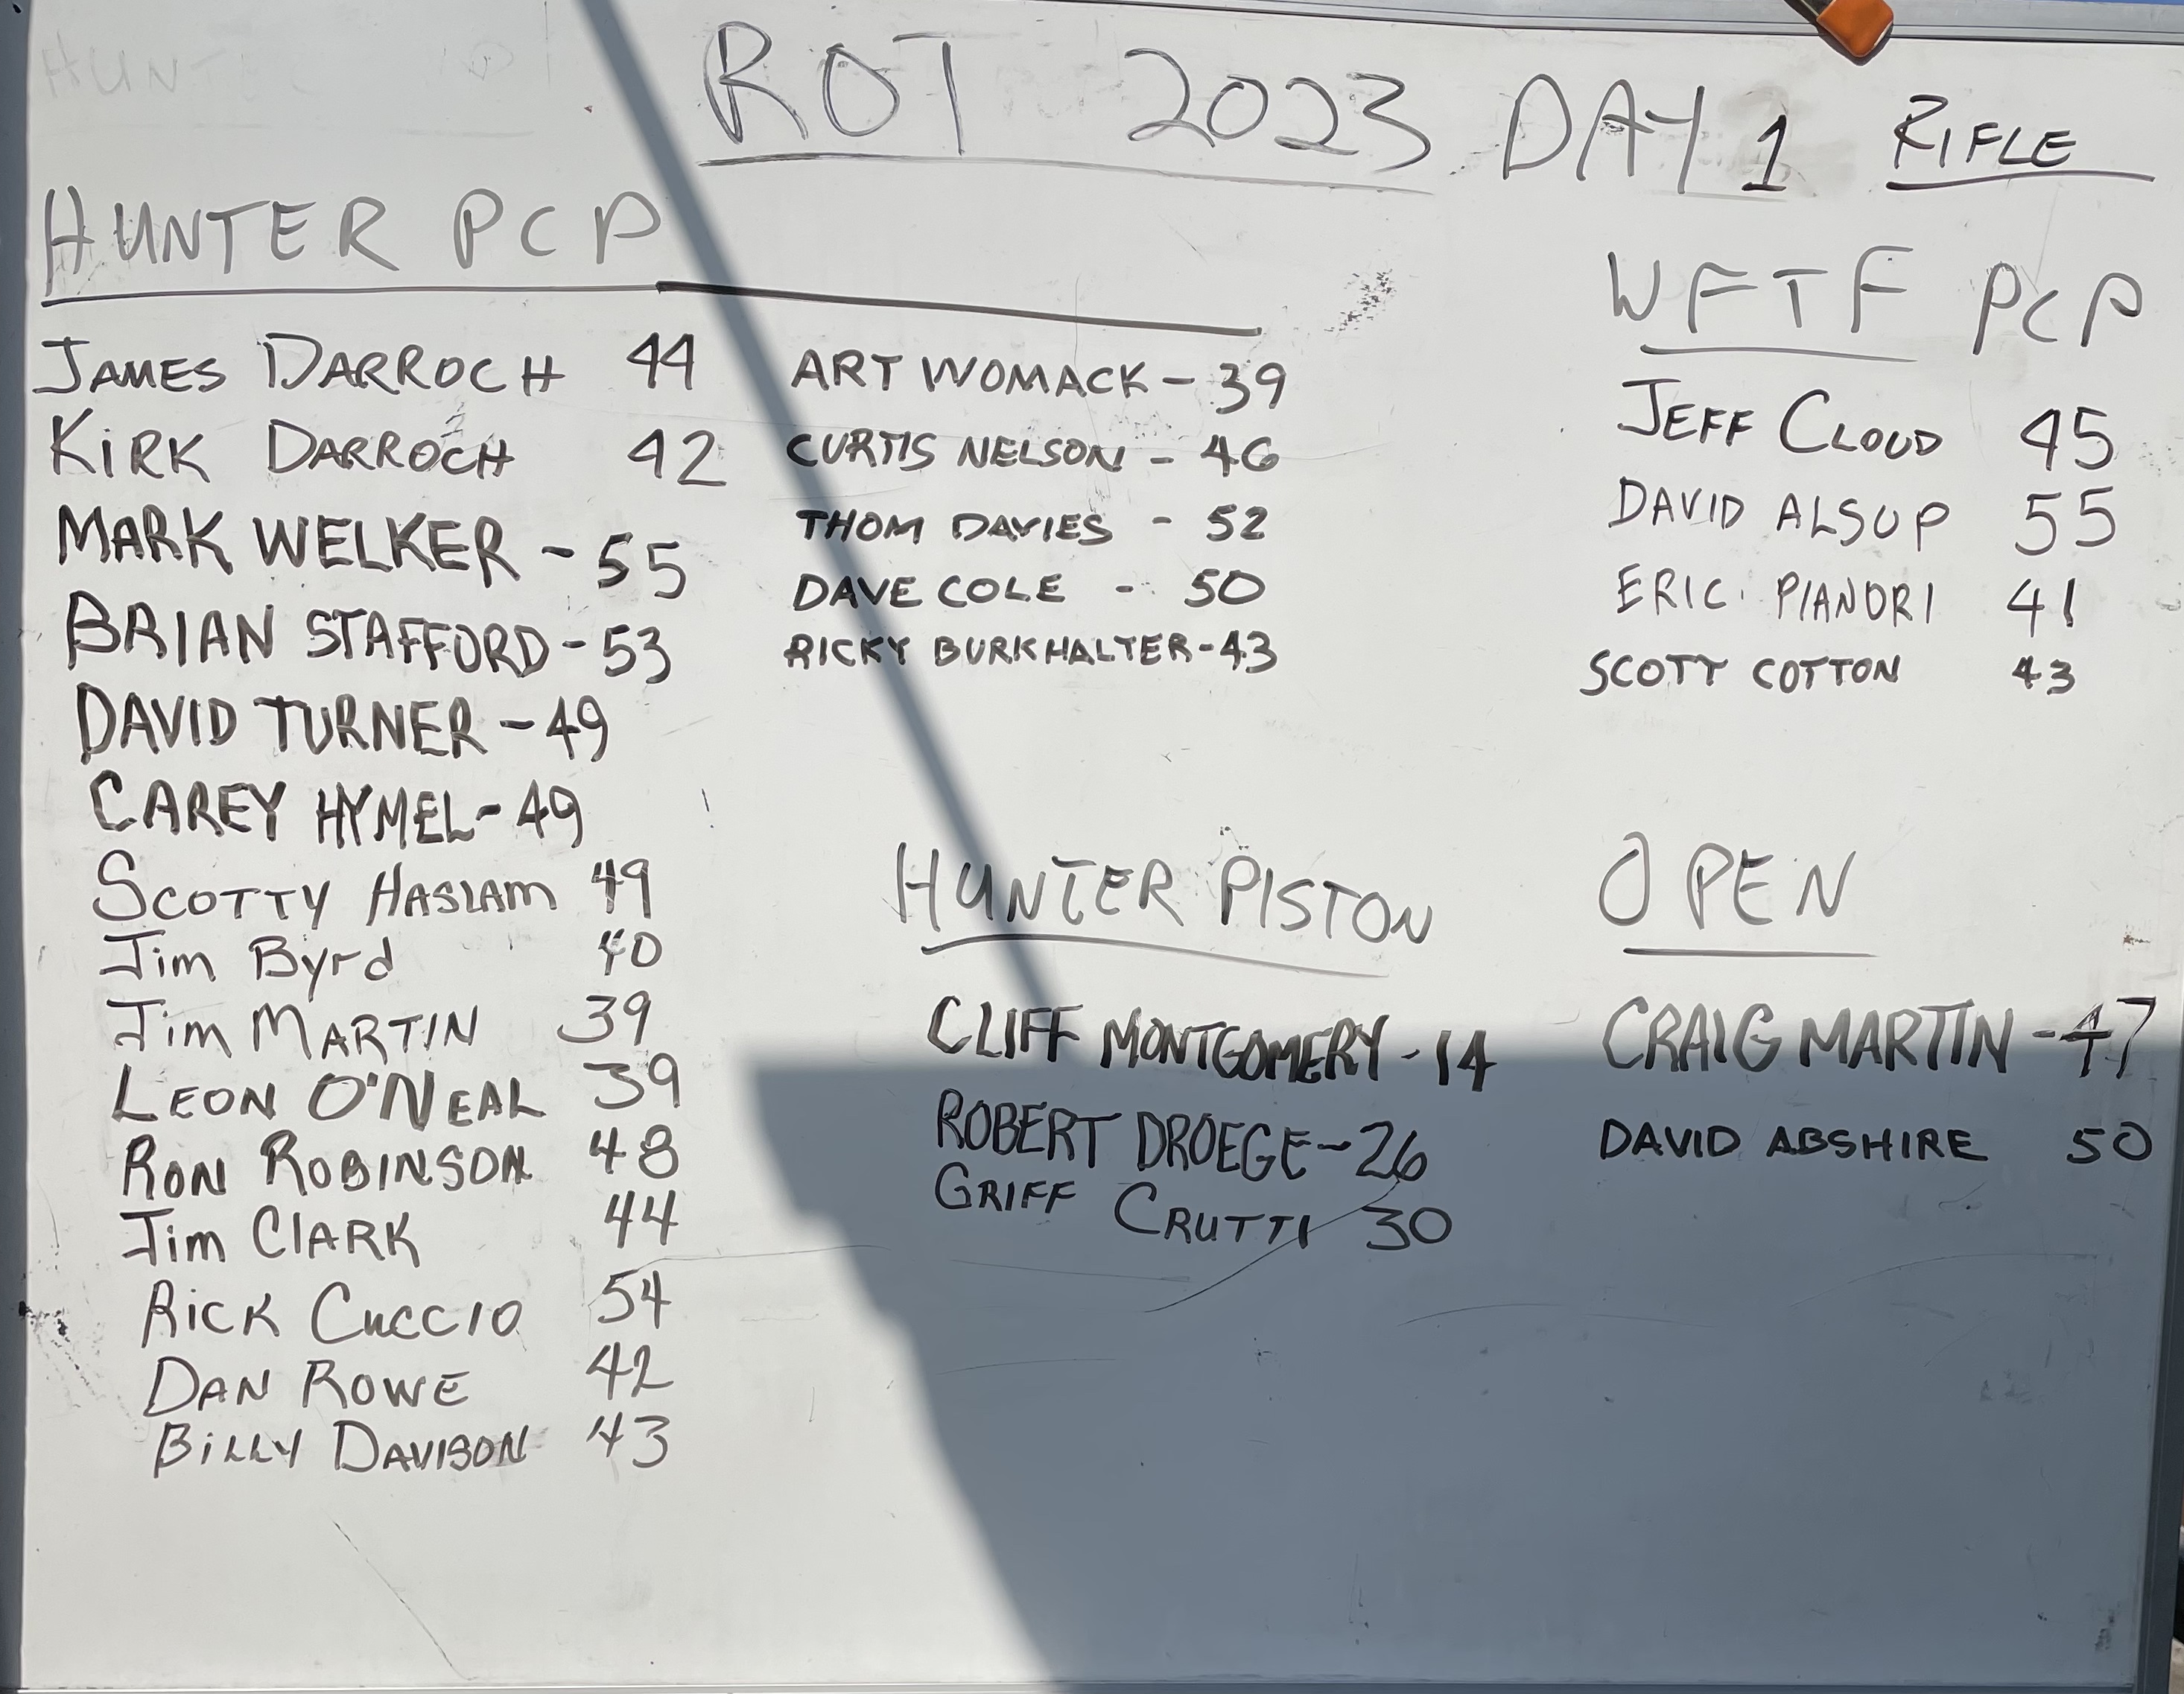 ROT 2023 DAY 1 RIFLE
HUNTER PCP
JAMES DARROCH 44
KIRK DARROCH 42
MARK WELKER - 55
BRIAN STAFFORD - 53
DAVID TURNER - 49
CAREY HYMEL - 49
SCOTTY HASLAM 49
Jim Byrd 40
Jim MARTIN 39
LEON O'NEAL 39
RON ROBINSON 48
Jim CLARK 44
RICK CUCCIO 54
DAN ROWE 42
BILLY DAVISON 43
ART WOMACK - 39
CURTIS NELSON - 46
THOM DAVIES - 52
DAVE COLE - 50
RICKY BURKHALTER - 43
WFTF PCP
JEFF CLOUD 45
DAVID ALSUP 55
ERIC PIANORI 41
SCOTT COTTON 43
HUNTER PISTON
CLIFF MONTGOMERY - 14
ROBERT DROEGE - 26
GRIFF CRUTTI 30
OPEN
CRAIG MARTIN - 47
DAVID ABSHIRE 50